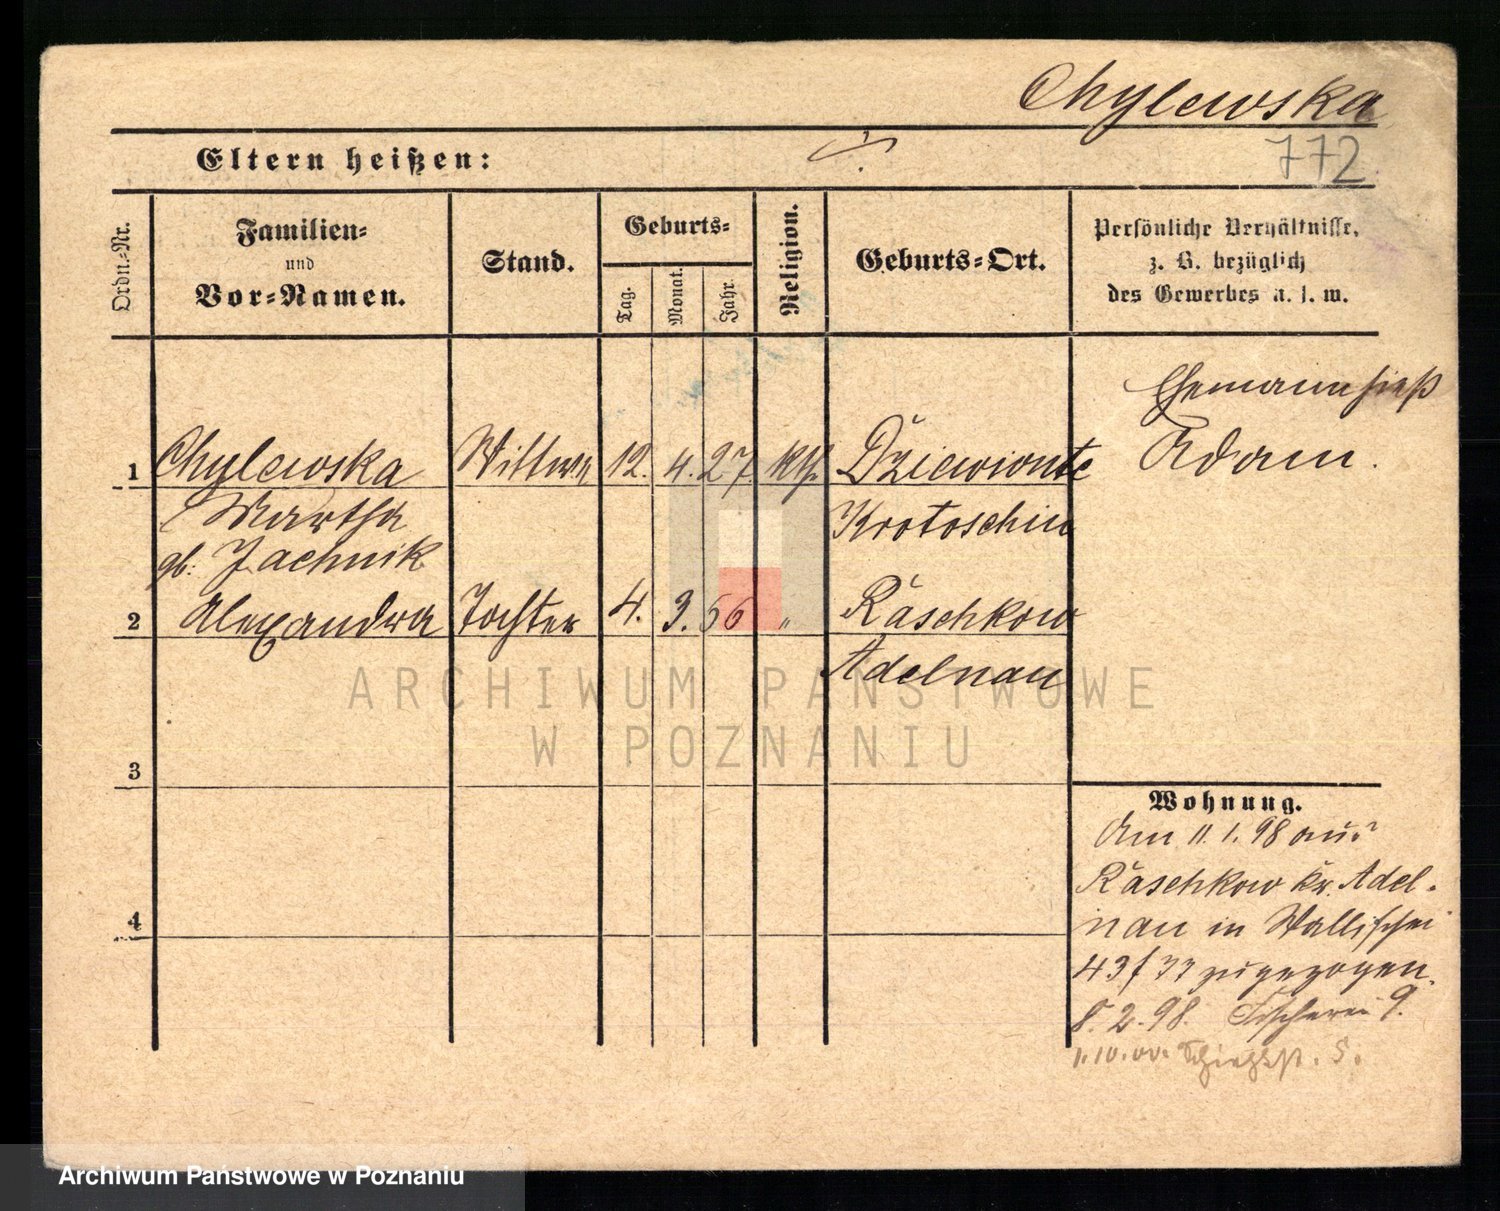 Chylewska
Eltern heißen:
772
Ordn.-Nr.
Familien-
und
Vor-Namen.
Stand.
Geburts-
Tag.
Monat.
Jahr.
Religion.
Geburts-Ort.
Persönliche Verhältnisse,
z. B. bezüglich
des Gewerbes u. s. w.
Ehemann hieß
Adam.
1 Chylewska Wittwe 12. 4. 27. kth. Dziewionte
Martha Krotoschin
gb: Jachnik
2 Alexandra Tochter 4. 3. 56 " Räschkow
Adelnau
3
4
Wohnung.
Am 11. 1. 98 aus
Räschkow Kr. Adel-
nau in Wallischei
43/ zugezogen.
8. 2. 98. Fischerei 9.
1. 10. 00. 5.
ARCHIWUM PAŃSTWOWE
W POZNANIU
Archiwum Państwowe w Poznaniu